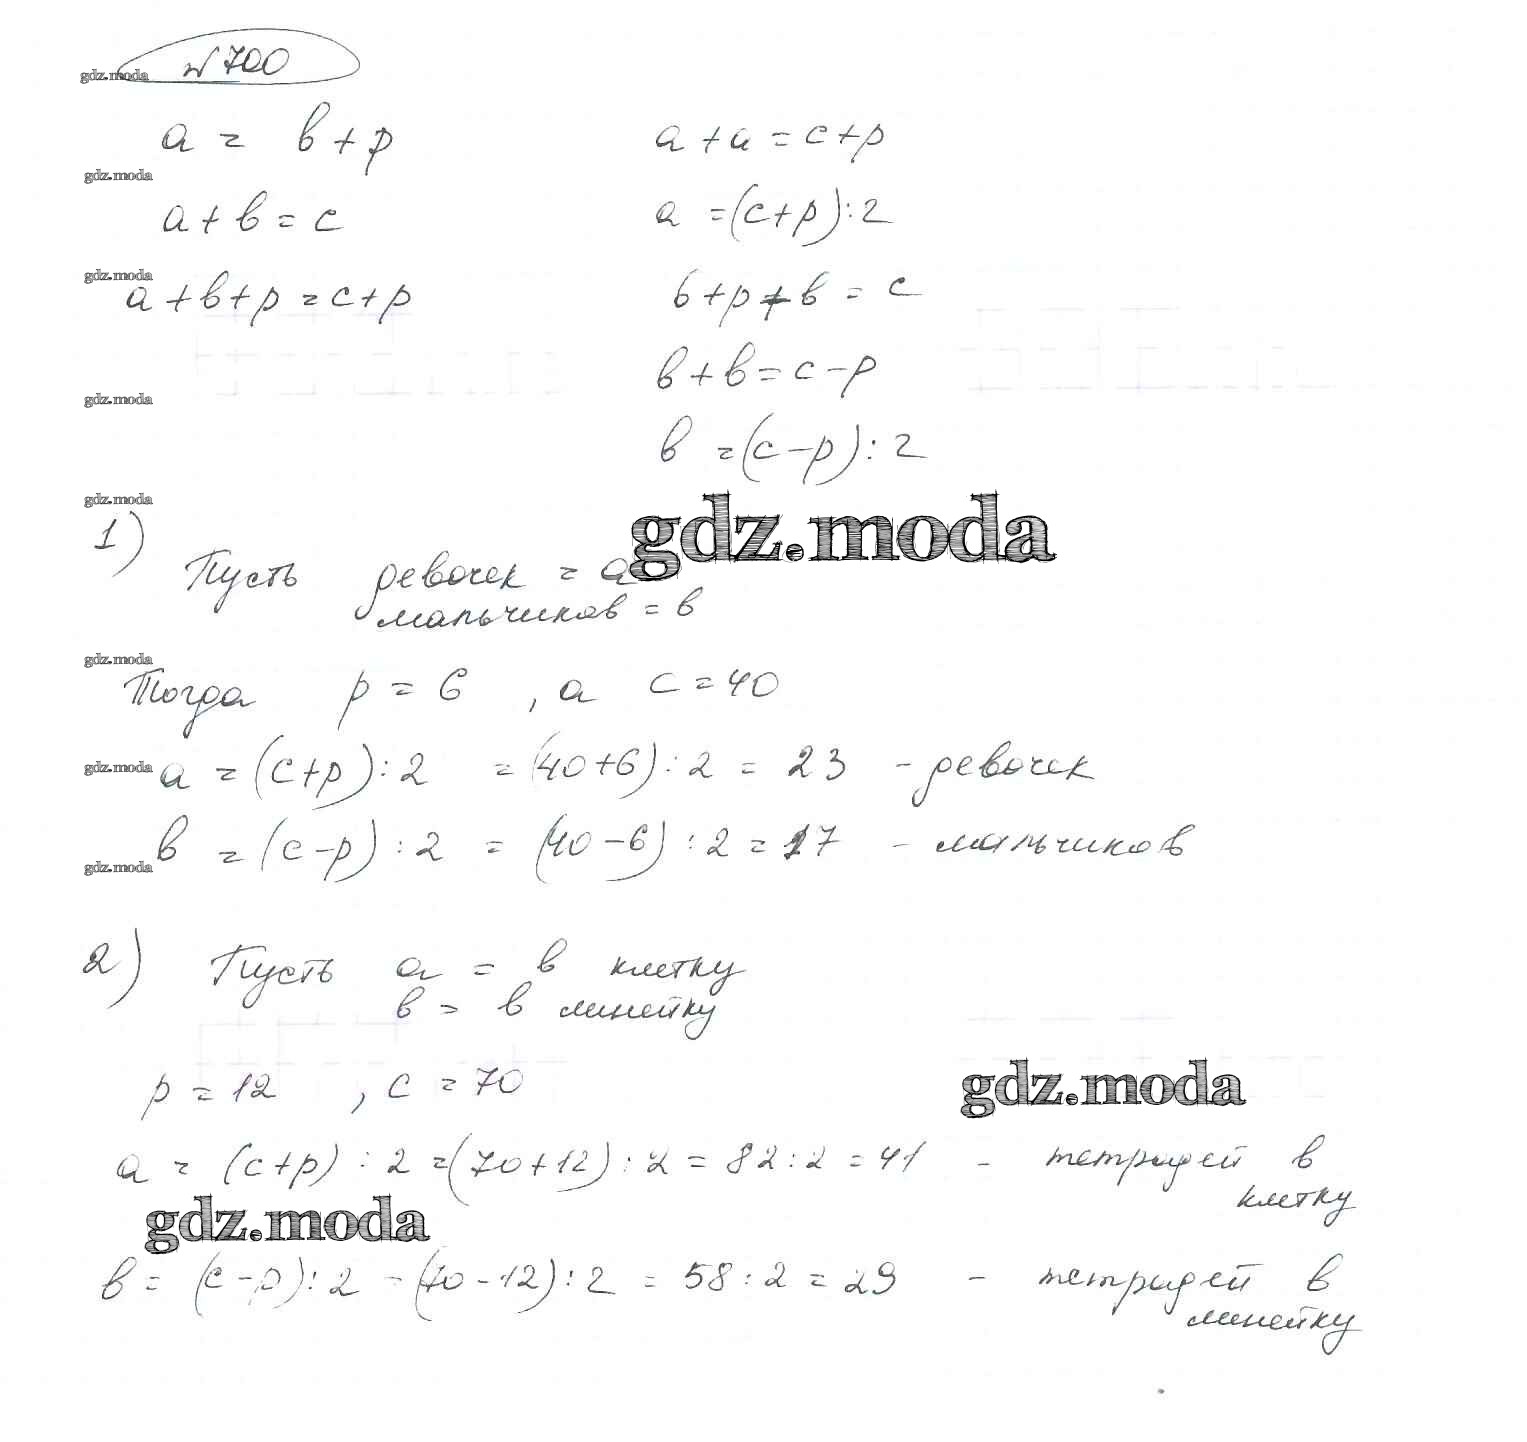 № 700
gdz.moda
a = в + p
a + a = c + p
gdz.moda
a + в = c
a = (c + p) : 2
gdz.moda
a + в + p = c + p
в + p + в = c
в + в = c - p
gdz.moda
в = (c - p) : 2
gdz.moda
gdz.moda
1)
Пусть девочек = a
мальчиков = в
gdz.moda
Тогда p = 6, а c = 40
gdz.moda
a = (c + p) : 2 = (40 + 6) : 2 = 23 - девочек
в = (c - p) : 2 = (40 - 6) : 2 = 17 - мальчиков
gdz.moda
2) Пусть a = в клетку
в = в линейку
p = 12, c = 70
gdz.moda
a = (c + p) : 2 = (70 + 12) : 2 = 82 : 2 = 41 - тетрадей в
клетку
gdz.moda
в = (c - p) : 2 = (70 - 12) : 2 = 58 : 2 = 29 - тетрадей в
линейку